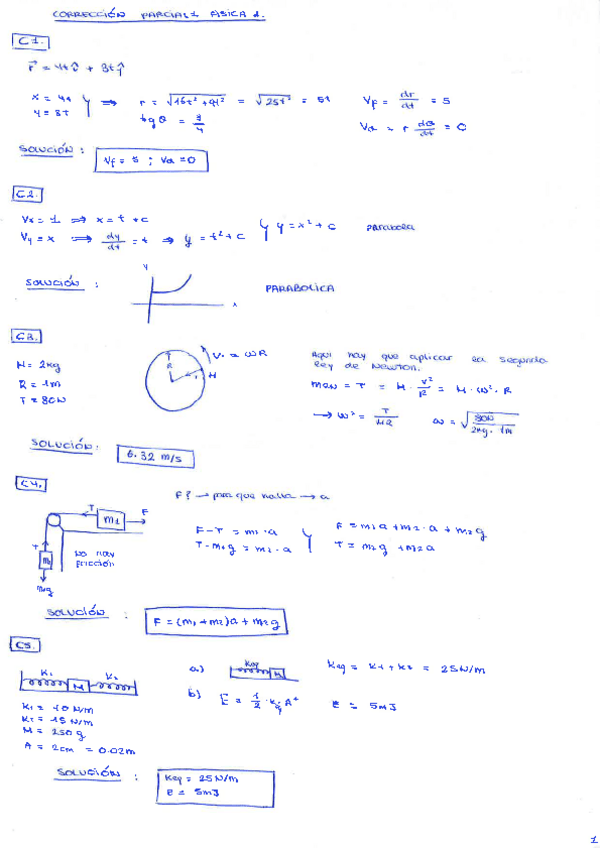 CORRECCIÓN PARCIAL 1 FISICA 1.
C1.
r⃗ = 4t î + 3t ĵ
x = 4t
y = 3t
⟹ r = √(16t² + 9t²) = √25t² = 5t
tg θ = 3/4
Vr = dr/dt = 5
Vθ = r dθ/dt = 0
SOLUCIÓN : Vr = 5 ; Vθ = 0
C2.
Vx = 1 ⟹ x = t + c
Vy = x ⟹ dy/dt = t ⟹ y = t² + c
y = x² + c parabola
SOLUCIÓN :
y
x
PARABOLICA
C3.
M = 2kg
R = 1m
T = 80N
R
V = ωR
M
Aqui hay que aplicar la segunda
ley de Newton.
T = M · V²/R = M · ω² · R
→ ω² = T/MR ω = √(80N/2kg · 1m)
SOLUCIÓN: 6.32 m/s
C4.
F? → para que halla → a
T m1 F
T
m2g
No hay
fricción
F - T = m1 · a
T - m2g = m2 · a
F = m1a + m2 · a + m2g
T = m2g + m2a
SOLUCIÓN : F = (m1 + m2)a + m2g
C5.
K1 M K2
K1 = 10 N/m
K2 = 15 N/m
M = 250 g
A = 2cm = 0.02m
a.) Keq M Keq = K1 + K2 = 25N/m
b) E = 1/2 · Keq A² E = 5mJ
SOLUCIÓN : Keq = 25 N/m
E = 5mJ
1